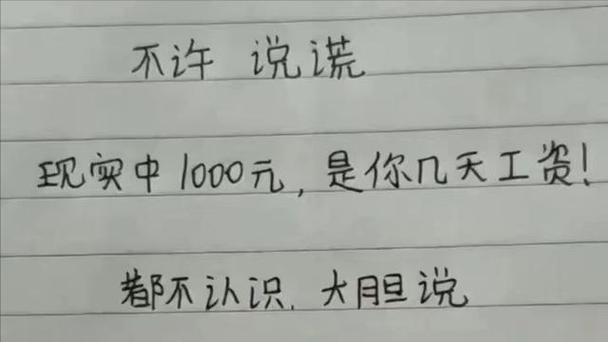 不许 说谎
现实中1000元,是你几天工资!
都不认识.大胆说